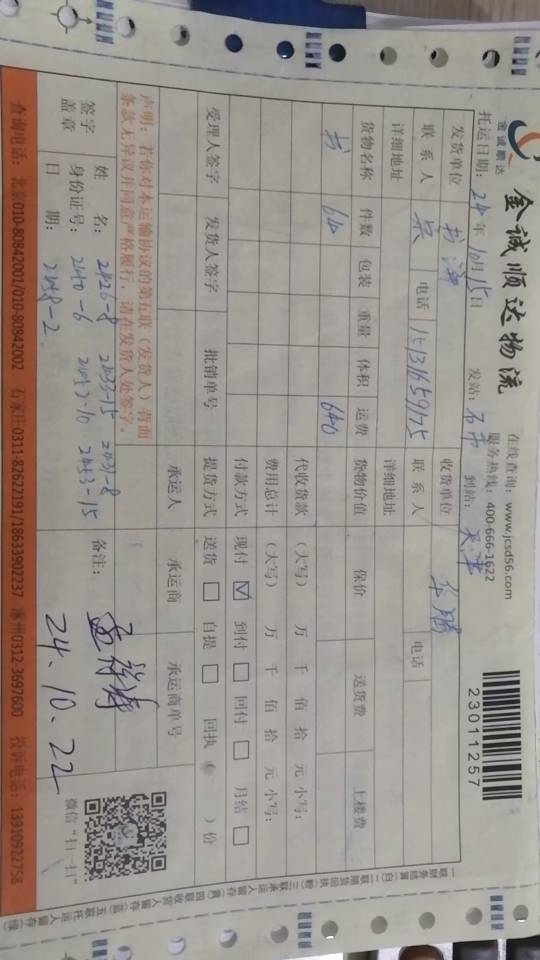 金诚顺达物流
金诚顺达
在线查询：www.jcsd56.com
服务热线：400-666-1622
23011257
托运日期：24年10月15日 发站：石市 到站：天津
发货单位 收货单位 华腾
联系人 吴 电话 15131659175 联系人 电话
详细地址 详细地址：
货物名称 件数 包装 重量 体积 运费 货物价值 保价 送货费 上楼费
书 64 640
代收货款 （大写） 万 千 佰 拾 元 小写：
费用总计 （大写） 万 千 佰 拾 元 小写：
付款方式 现付 ☑ 到付 □ 回付 □ 月结 □
受理人签字 发货人签字 批销单号 提货方式 送货 □ 自提 □ 回执（ ）份
承运人 承运商 承运商单号
声明：若你对本运输协议的第五联（发货人）背面
条款无异议并同意严格履行，请在发货人处签字。
签字
盖章
姓 名： 2426-8 2433-15 2431-8
身份证号： 2440-6 2443-15
日 期： 2438-2
备注：
24.10.22
微信“扫一扫”
查询电话：北京010-80842001/010-80842002 石家庄0311-82622191/18633902237 涿州0312-3697600 投诉电话：13910922758